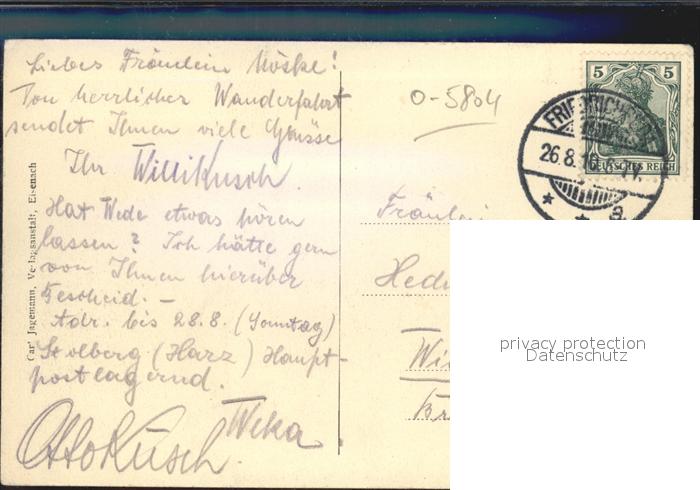 Liebes Fräulein Möske!
Von herrlicher Wanderfahrt
sendet Ihnen viele Grüsse
Ihr Willi Kusch.
Hat Wede etwas hören
lassen? Ich hätte gern
von Ihnen hierüber
Bescheid. —
Adr. bis 28.8. (Sonntag)
Stolberg (Harz) Haupt-
postlagernd.
Weka
Otto Kusch.
Carl Jagemann, Verlagsanstalt, Eisenach
0-5804
5 5
DEUTSCHES REICH
26.8.16
Fräulein
privacy protection
Datenschutz